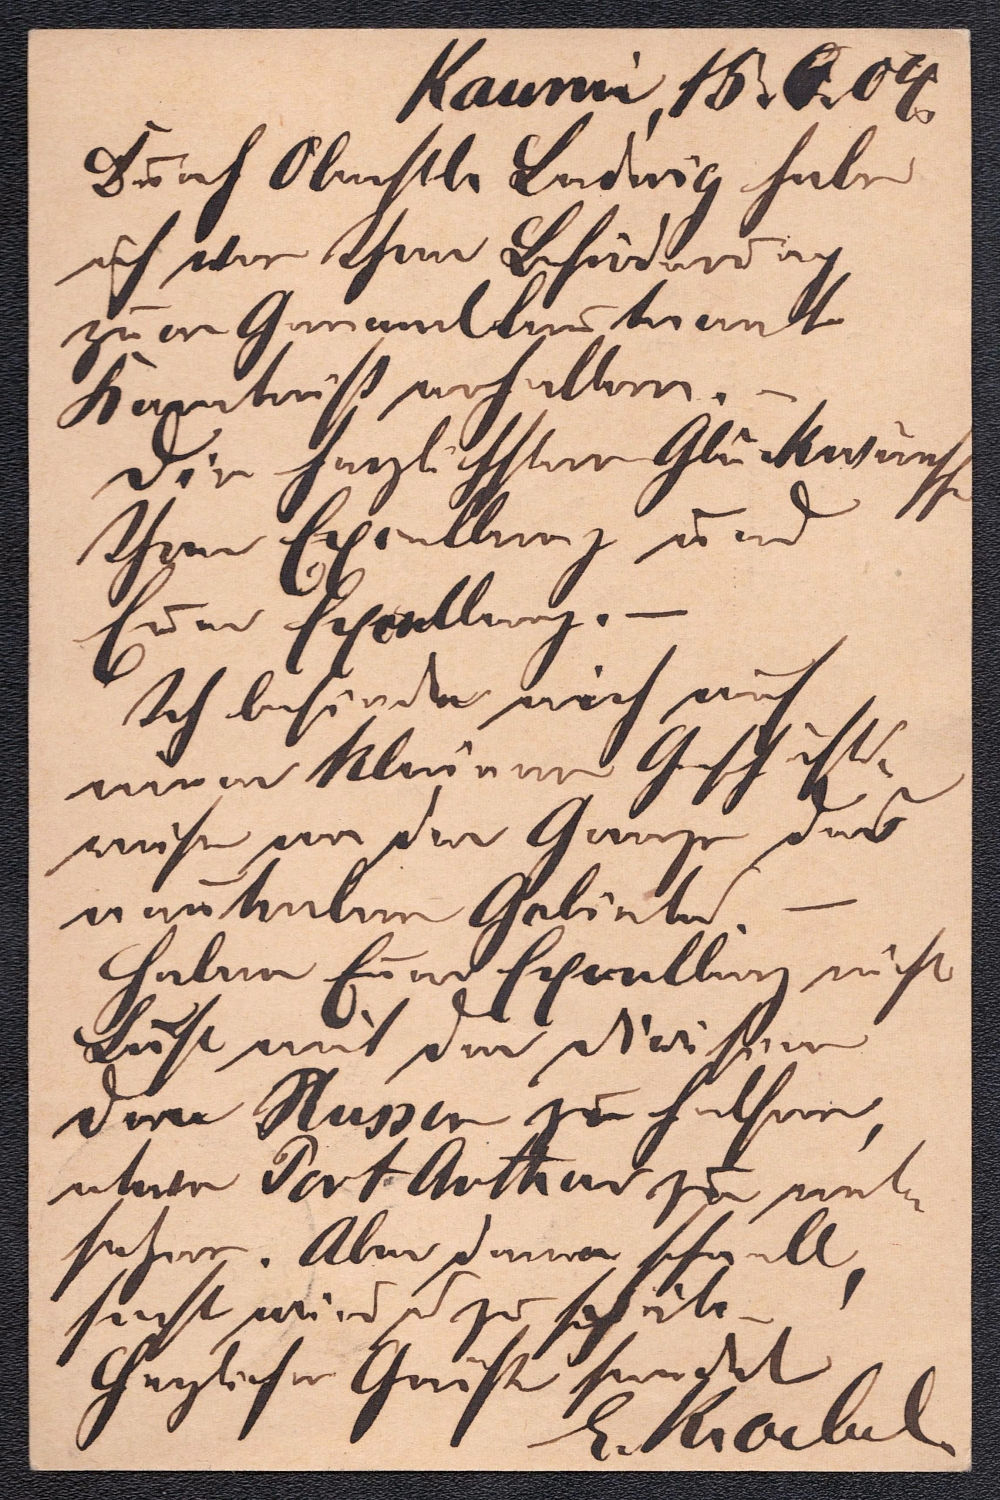 Kaumi, 15. 6. 04.
Durch Oberstlt. Ludwig habe
ich von Ihrer Beförderung
zum Generalleutnant
Kenntniß erhalten. –
Die herzlichsten Glückwünsche
Ihrer Exzellenz und
Eurer Exzellenz. —
Ich befinde mich auf
einer kleinen Geschäfts-
reise an der Grenze des
neutralen Gebiets. —
Haben Eure Exzellenz nicht
Lust mit der Division
den Russen zu helfen,
etwa Port Arthur zu ent-
setzen. Aber dann schnell,
sonst wird es zu spät. –
Herzliche Grüße sendet
E. Kroebel.